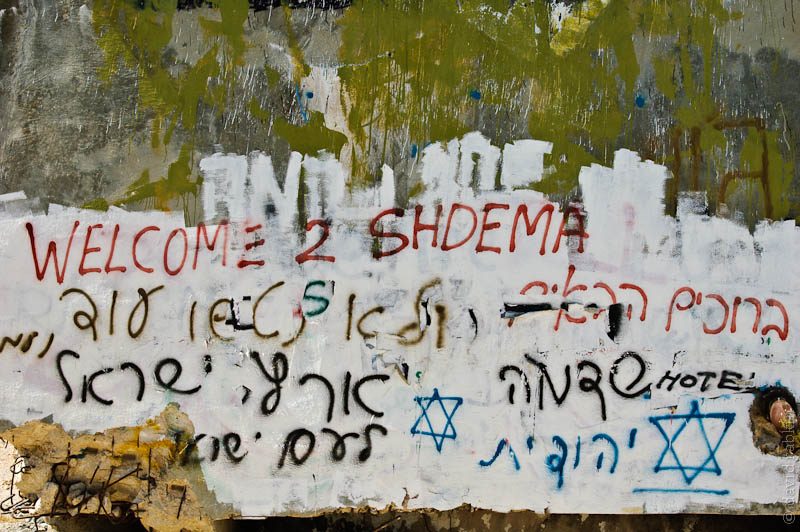 WELCOME 2 SHDEMA
ברוכים הבאים
ולא ינטשו עוד
שדמה HOTEL
ארץ ישראל
יהודית
לעם ישראל